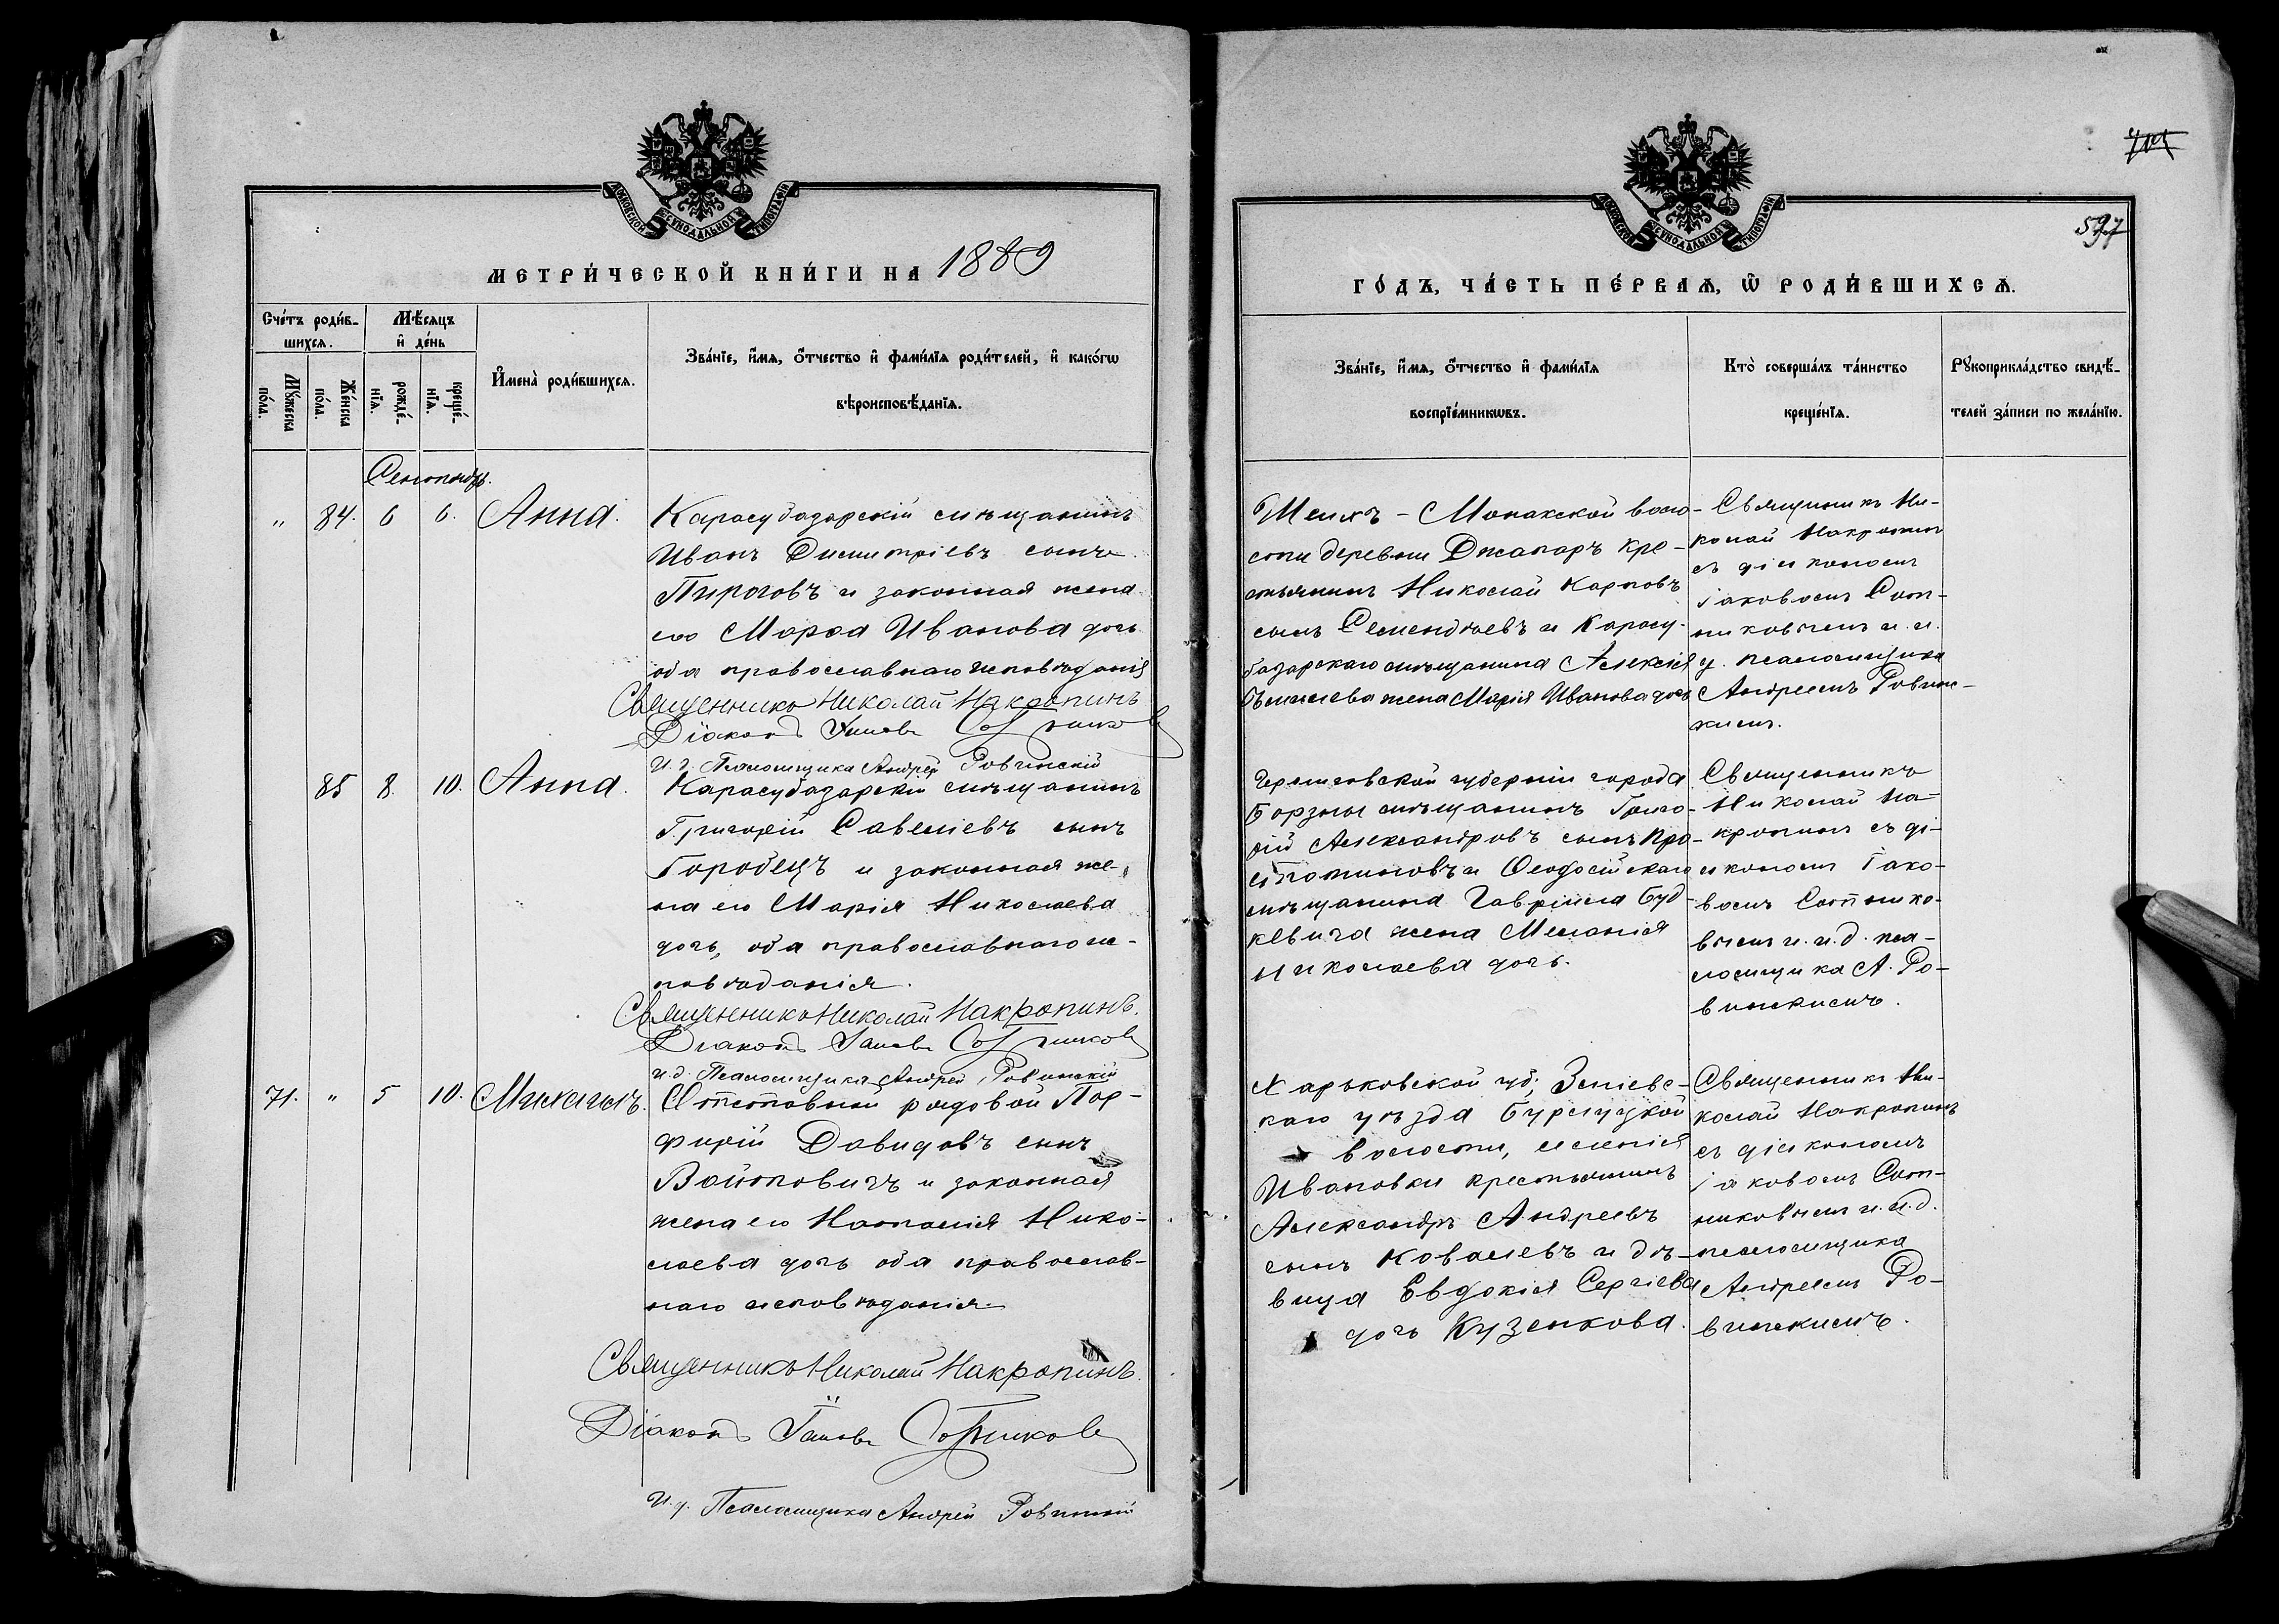 МОСКОВСКОЙ СѴНОДАЛЬНОЙ ТИПОГРАФІИ
МЕТРИ́ЧЕСКОЙ КНИ́ГИ НА 1889
Сче́тъ роди́в-
шихсѧ.
Мѣ́сяцъ
и҆ де́нь
Мꙋ́жеска
по́ла.
Же́нска
по́ла.
рожде́-
нїѧ.
креще́-
нїѧ.
И҆мена̀ роди́вшихсѧ.
Зва́нїе, и҆́мѧ, ѻ҆́тчество и҆ фами́лїѧ роди́телей, и҆ како́гѡ
вѣроисповѣ́данїѧ.
Сентябрь.
" 84. 6 6. Анна.
Карасубазарскій мѣщанинъ
Иванъ Димитріевъ сынъ
Пироговъ и законная жена
его Марѳа Иванова дочь
оба православнаго исповѣданія
Священникъ Николай Макропинъ
Діаконъ Іаковъ Сотников
И. д. Псаломщика Андрей Ровинскій
85 8. 10. Анна.
Карасубазарскій мѣщанинъ
Григорій Савеліевъ сынъ
Городецъ и законная же-
на его Марія Николаева
дочь, оба православнаго ис-
повѣданія.
Священникъ Николай Макропинъ.
Діаконъ Іаковъ Сотников
и. д. Псаломщика Андрей Ровинскій
71. " 5 10. Михаилъ.
Отставной рядовой Пор-
фирій Давидовъ сынъ
Войтовичъ и законная
жена его Наталія Нико-
лаева дочь оба православ-
наго исповѣданія.
Священникъ Николай Макропинъ.
Діаконъ Іаковъ Сотников
И. д. Псаломщика Андрей Ровинскій
597
МОСКОВСКОЙ СѴНОДАЛЬНОЙ ТИПОГРАФІИ
ГО́ДЪ, ЧА́СТЬ ПЕ́РВАѦ, Ѽ РОДИ́ВШИХСѦ.
Зва́нїе, и҆́мѧ, ѻ҆́тчество и҆ фами́лїѧ
воспрїе́мникѡвъ.
Кто̀ соверша́лъ та́инство
креще́нїѧ.
Рꙋкоприкла́дство свидѣ́-
телей за́писи по жела́нїю.
Шейхъ-Монакской воло-
сти деревни Джапаръ кре-
стьянинъ Николай Карповъ
сынъ Семендяевъ и Карасу-
базарскаго мѣщанина Алексѣя
жена Марія Иванова дочь
Священникъ Ни-
колай Макропинъ
съ діакономъ
Іаковомъ Сот-
никовымъ и и.
д. псаломщика
Андреемъ Ровин-
скимъ.
Черниговской губерніи города
Борзны мѣщанинъ Григо-
рій Александровъ сынъ Про-
стотиновъ и Ѳеодосійскаго
мѣщанина Гавріила Буд-
кевича жена Меланія
Николаева дочь.
Священникъ
Николай Ма-
кропинъ съ ді-
акономъ Іако-
вомъ Сотнико-
вымъ и и. д. пса-
ломщика А. Ро-
винскимъ.
Харьковской губ; Зміевс-
каго уѣзда Бурлуцкой
волости, имѣнія
Ивановки крестьянинъ
Александръ Андреевъ
сынъ Ковалевъ и дѣ-
вица Евдокія Сергіева
дочь Кузенкова.
Священникъ Ни-
колай Макропинъ
съ діакономъ
Іаковомъ Сот-
никовымъ и и. д.
псаломщика
Андреемъ Ро-
винскимъ.